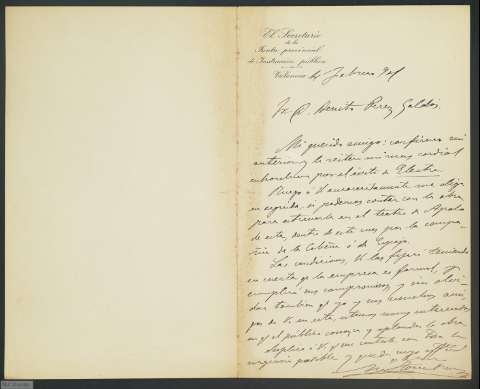 El Secretario
de la
Junta provincial
de Instrucción pública
Valencia 4 Febrero 901
Sr. D. Benito Perez Galdós.
Mi querido amigo: confirmo mi
anterior y le reitero mi mas cordial
enhorabuena por el éxito de Electra.
Ruego á V encarecidamente me diga
en seguida, si podemos contar con la obra
para estrenarla en el teatro de Apolo
de esta, dentro de este mes por la compa-
ñia de la Cobeña ó de
Las condiciones, V las fijará teniendo
en cuenta qe la empresa es formal, qe
cumplirá sus compromisos y sin olvi-
dar tambien qe yo y
de V en esta, estamos muy interesados
en qe el público conozca y aplauda la obra.
Suplico á V qe me conteste con toda la
urgencia posible y